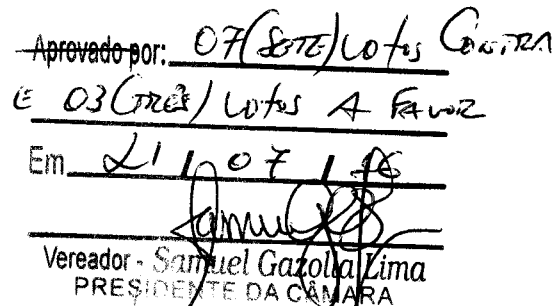 Aprovado por: 07 (SETE) votos CONTRA
E 03 (TRÊS) votos A FAVOR
Em 21 / 07 / 16
Vereador - Samuel Gazolla Lima
PRESIDENTE DA CÂMARA